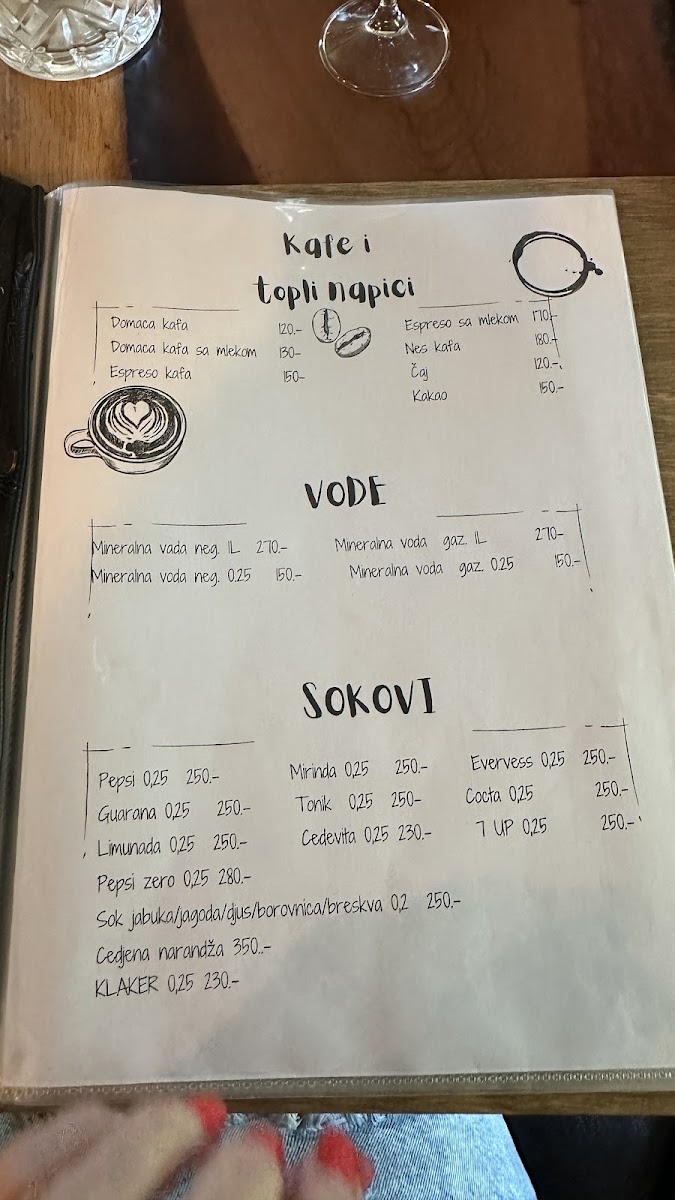 Kafe i
topli napici
Domaca kafa 120.-
Domaca kafa sa mlekom 130-
Espreso kafa 150-
Espreso sa mlekom 170.-
Nes kafa 180.-
Čaj 120.-
Kakao 150.-
VODE
Mineralna vada neg. 1L 270.-
Mineralna voda neg. 0.25 150.-
Mineralna voda gaz. 1L 270-
Mineralna voda gaz. 0.25 150.-
SOKOVI
Pepsi 0,25 250.-
Guarana 0,25 250.-
Limunada 0,25 250.-
Pepsi zero 0,25 280.-
Mirinda 0,25 250.-
Tonik 0,25 250.-
Cedevita 0,25 230.-
Evervess 0,25 250.-
Cocta 0,25 250.-
7 UP 0,25 250.-
Sok jabuka/jagoda/djus/borovnica/breskva 0,2 250.-
Cedjena narandža 350..-
KLAKER 0,25 230.-